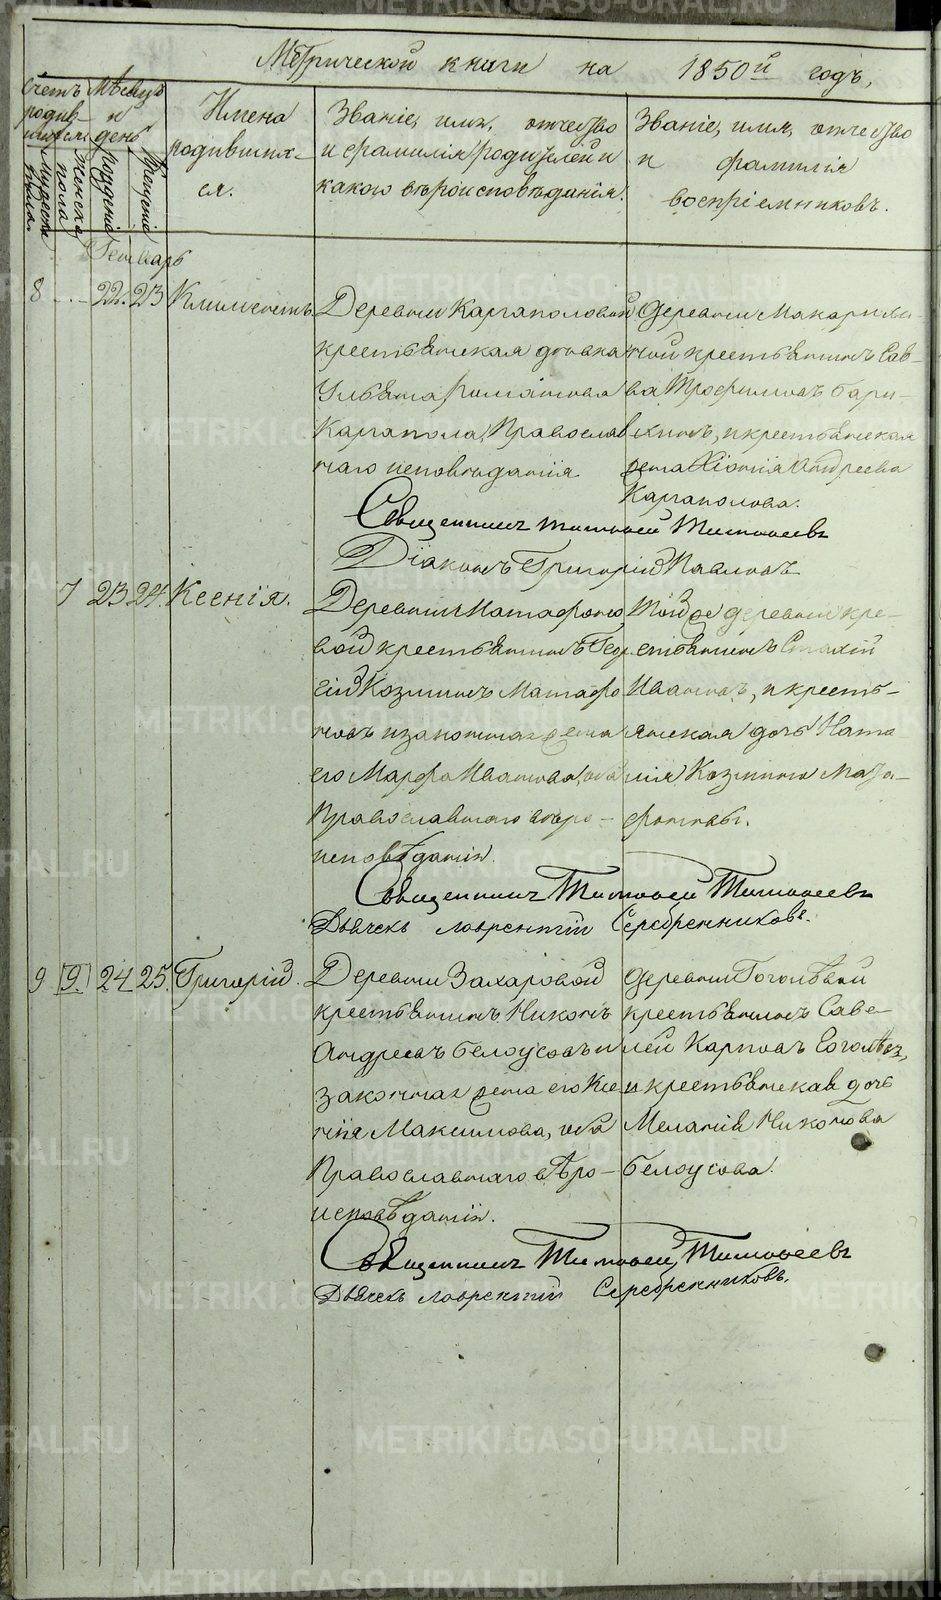 Метрической книги на 1850й годъ,
Счетъ родив-шихся.
Мужеска пола.
Женска пола
Мѣсяцъ и день
Рожденія
Крещенія
Имена родивших-ся.
Званіе, имя, отчество и фамилія родителей и какого вѣроисповѣданія.
Званіе, имя, отчество и фамилія воспріемниковъ.
Генварь
8 .. 22. 23 Климентъ.
Деревни Каргаполовой
крестьянская дѣвка
Ульяна Романова
Каргапола, Православ
наго исповѣданія
деревни Макарьи-
ной крестьянинъ Сав-
ва Трофимовъ Бары-
хинъ, и крестьянская
жена Хіонія Андреева
Каргаполова.
Священникъ Тимоѳей Тимоѳеевъ
Діаконъ Григорій Павловъ
7 23 24. Ксенія.
Деревни Матафоно
вой крестьянинъ Геор
гій Козминъ Матафо
новъ и законная жена
его Марфа Иванова, оба
Православнаго вѣро-
исповѣданія.
Той же деревни кре-
стьянинъ Стахій
Ивановъ, и кресть-
янская дочь Ната
лія Козмина Мата-
фоновы.
Священникъ Тимоѳей Тимоѳеевъ
Дьячекъ Лаврентій Серебренниковъ.
9 9. 24 25. Григорій.
Деревни Захаровой
крестьянинъ Никонъ
Андреевъ Белоусовъ и
законная жена его Ксе
нія Максимова, оба
Православнаго вѣро-
исповѣданія.
деревни Гоголѣвой
крестьянинъ Саве-
лей Карповъ Гоголѣвъ,
и крестьянская дочь
Меланія Никонова
Белоусова.
Священникъ Тимоѳей Тимоѳеевъ
Дьячекъ Лаврентій Серебренниковъ.
METRIKI.GASO-URAL.RU